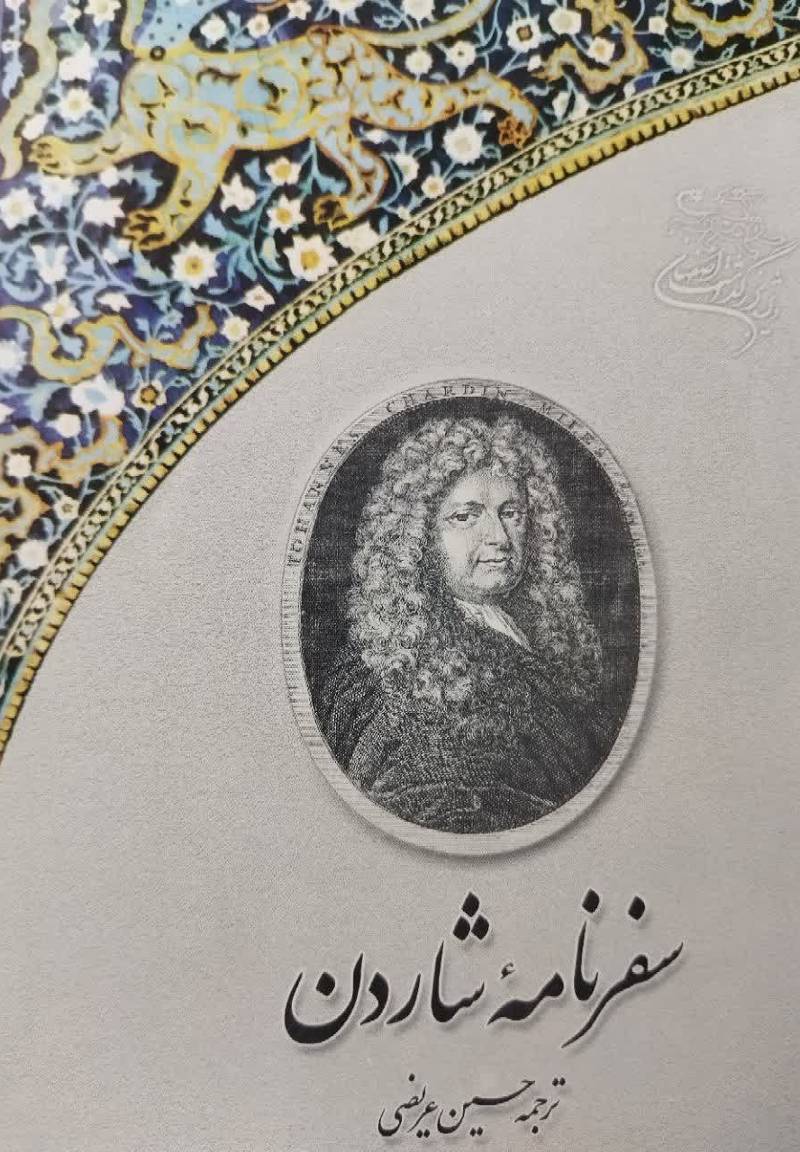 IOHANNES CHARDIN MILES
سفرنامهٔ شاردن
ترجمه حسین عریضی